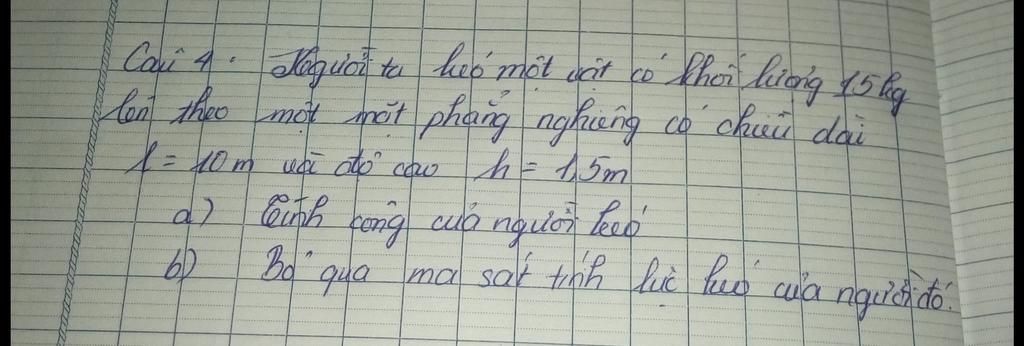 Câu 4. Người ta kéo một vật có khối lượng 15kg
lên theo một mặt phẳng nghiêng có chiều dài
l = 10m và độ cao h = 1,5m
a) Tính công của người kéo
b) Bỏ qua ma sát tính lực kéo của người đó.